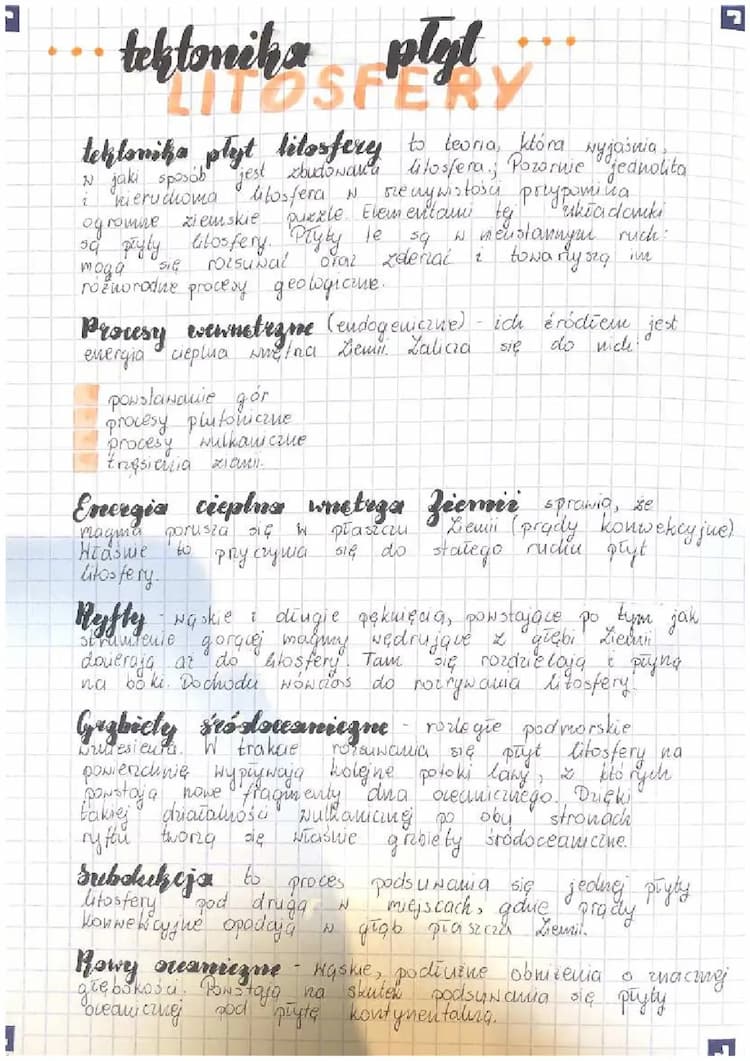 tektonika płyt
LITOSFERY
tektonika płyt litosfery to teoria, która wyjaśnia,
w jaki sposób jest zbudowana litosfera.; Pozornie jednolita
i nieruchoma litosfera w rzeczywistości przypomina
ogromne ziemskie puzzle. Elementami tej układanki
są płyty litosfery. Płyty te są w nieustannym ruch:
mogą się rozsuwać oraz zderzać i towarzyszą im
różnorodne procesy geologiczne.
Procesy wewnętrzne (endogeniczne) - ich źródłem jest
energia cieplna wnętrza Ziemii. Zalicza się do nich:
powstawanie gór
procesy plutoniczne
procesy wulkaniczne
trzęsienia ziemii.
Energia cieplna wnętrza Ziemii sprawia, że
magma porusza się w płaszczu Ziemii (prądy konwekcyjne)
Właśnie to przyczynia się do stałego ruchu płyt
litosfery.
Ryfty - wąskie i długie pęknięcia, powstające po tym jak
strumienie gorącej magmy wędrujące z głębi Ziemii
docierają aż do litosfery. Tam się rozdzielają i płyną
na boki. Dochodzi wówczas do rozrywania litosfery.
Grzbiety śródoceaniczne - rozległe podmorskie
wzniesienia. W trakcie rozsuwania się płyt litosfery na
powierzchnię wypływają kolejne potoki lawy, z których
powstają nowe fragmenty dna oceanicznego. Dzięki
takiej działalności wulkanicznej po obu stronach
ryftu tworzą się właśnie grzbiety śródoceaniczne.
Subdukcja to proces podsuwania się jednej płyty
litosfery pod drugą w miejscach, gdzie prądy
konwekcyjne opadają w głąb płaszcza Ziemii.
Rowy oceaniczne - wąskie, podłużne obniżenia o znacznej
głębokości. Powstają na skutek podsuwania się płyty
oceanicznej pod płytę kontynentalną.